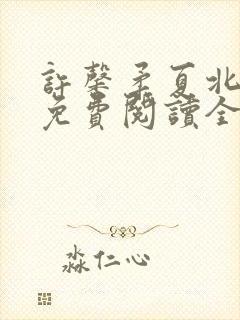 許馨矛夏北
免費閱讀全
淼仁心